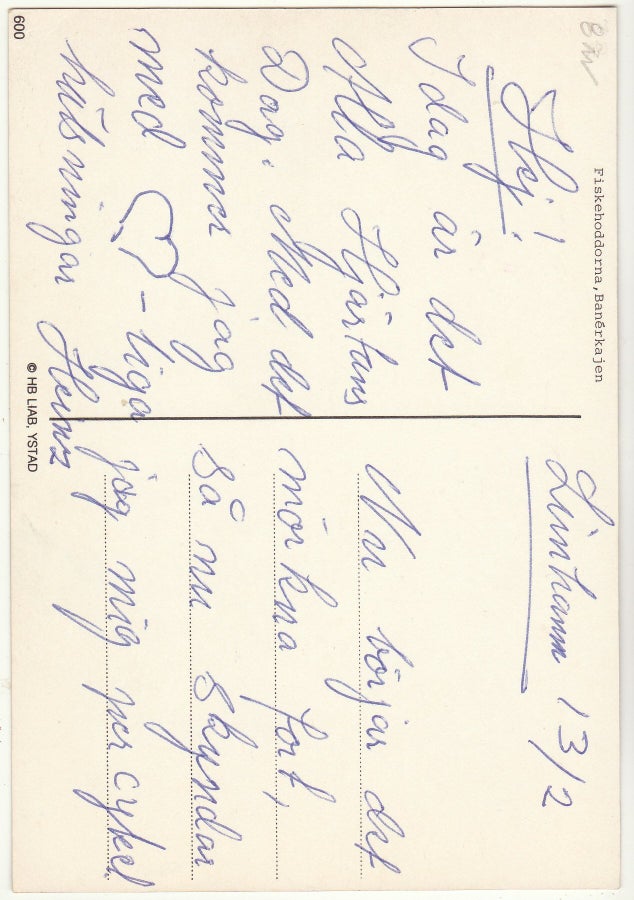 Fiskehoddorna, Banérkajen
Hej!
Idag är det
Alla Hjärtans
Dag. Med det
kommer jag
med ♡-liga
hälsningar Heinz
Limhamn 13/2
Nu börjar det
mörkna fort,
så nu skyndar
jag mig per cykel
© HB LIAB, YSTAD
600